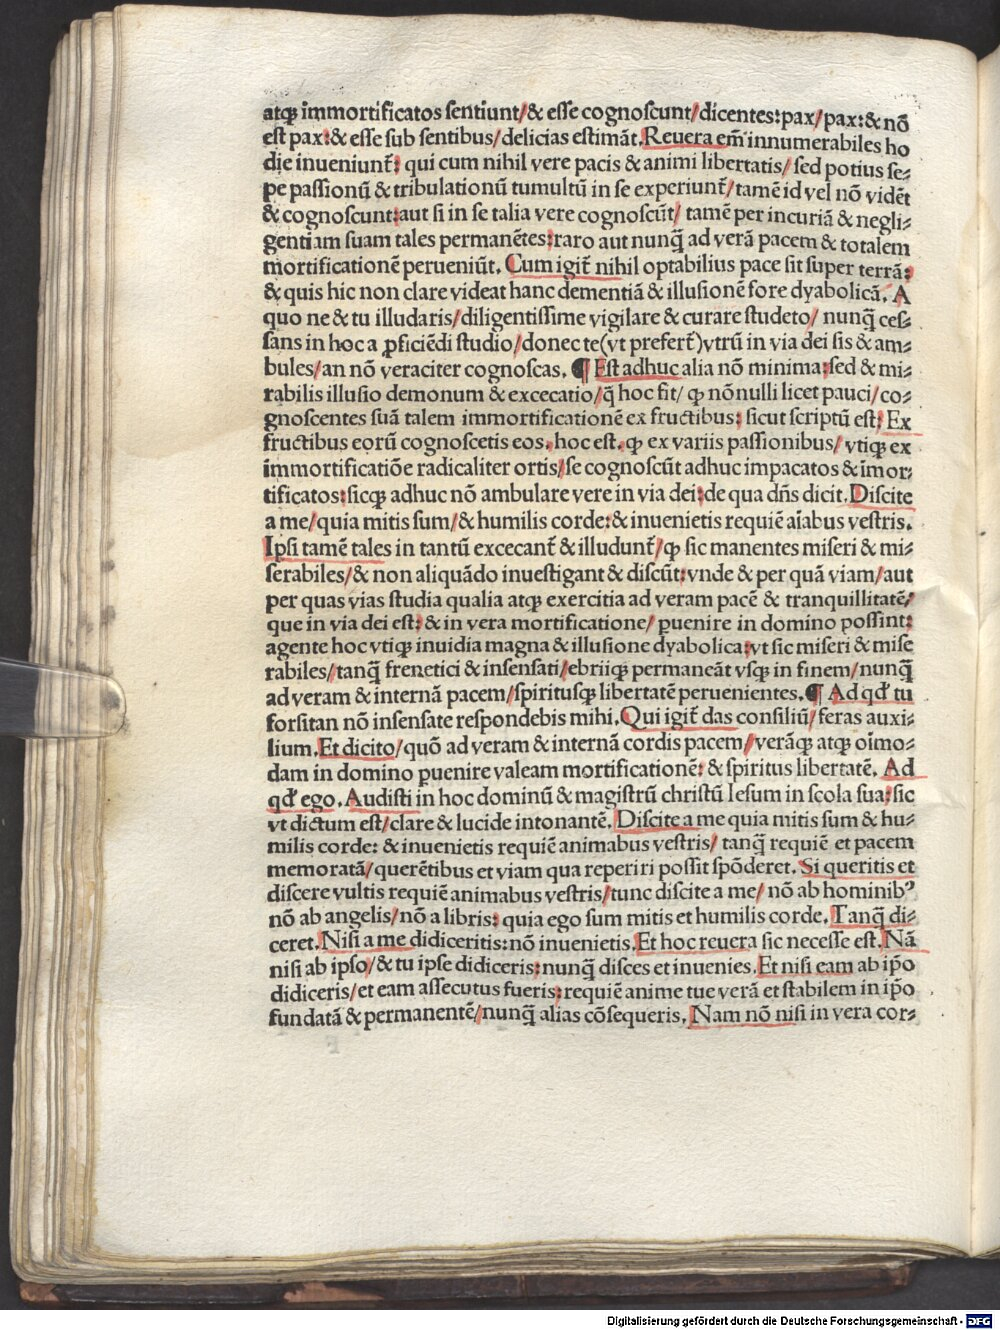 atqꝫ immortificatos ſentiunt/& eſſe cognoſcunt/dicentes:pax/pax:& nō
eſt pax:& eſſe ſub ſentibus/delicias eſtimāt.Reuera em̄ innumerabiles ho
die inueniunt᷑: qui cum nihil vere pacis & animi libertatis/ſed potius ſe⸗
pe paſſionū & tribulationū tumultū in ſe experiunt᷑/tamē id vel nō vidēt
& cognoſcunt:aut ſi in ſe talia vere cognoſcūt/ tamē per incuriā & negli⸗
gentiam ſuam tales permanētes:raro aut nunq̄ ad verā pacem & totalem
mortificationē perueniūt. Cum igit᷑ nihil optabilius pace ſit ſuper terrā:
& quis hic non clare videat hanc dementiā & illuſionē fore dyabolicā. A
quo ne & tu illudaris/diligentiſſime vigilare & curare ſtudeto/ nunq̄ ceſ⸗
ſans in hoc a ꝓficiēdi ſtudio/donec te(vt prefert᷑)vtrū in via dei ſis & am⸗
bules/an nō veraciter cognoſcas. ¶ Eſt adhuc alia nō minima:ſed & mi⸗
rabilis illuſio demonum & excecatio/q̄ hoc fit/ ꝙ nōnulli licet pauci/co⸗
gnoſcentes ſuā talem immortificationē ex fructibus: ſicut ſcriptū eſt: Ex
fructibus eorū cognoſcetis eos.hoc eſt.ꝙ ex variis paſſionibus/ vtiqꝫ ex
immortificatiōe radicaliter ortis/ſe cognoſcūt adhuc impacatos & īmor⸗
tificatos:ſicqꝫ adhuc nō ambulare vere in via dei:de qua dn̄s dicit.Diſcite
a me/quia mitis ſum/& humilis corde:& inuenietis requiē aīabus veſtris.
Ipſi tamē tales in tantū excecant᷑ & illudunt᷑/ꝙ ſic manentes miſeri & mi⸗
ſerabiles/& non aliquādo inueſtigant & diſcūt:vnde & per quā viam/aut
per quas vias ſtudia qualia atqꝫ exercitia ad veram pacē & tranquillitatē/
que in via dei eſt: & in vera mortificatione/ puenire in domino poſſint:
agente hoc vtiqꝫ inuidia magna & illuſione dyabolica:vt ſic miſeri & miſe
rabiles/tanq̄ frenetici & inſenſati/ebriiqꝫ permaneāt vſqꝫ in finem/nunq̄
ad veram & internā pacem/ſpirituſqꝫ libertatē peruenientes.¶ Ad qd̓ tu
forſitan nō inſenſate reſpondebis mihi.Qui igit᷑ das conſiliū/feras auxi⸗
lium.Et dicito/quō ad veram & internā cordis pacem/verāqꝫ atqꝫ oīmo⸗
dam in domino puenire valeam mortificationē: & ſpiritus libertatē. Ad
qd̓ ego.Audiſti in hoc dominū & magiſtrū chriſtū Ieſum in ſcola ſua:ſic
vt dictum eſt/clare & lucide intonantē. Diſcite a me quia mitis ſum & hu⸗
milis corde: & inuenietis requiē animabus veſtris/ tanq̄ requiē et pacem
memoratā/querētibus et viam qua reperiri poſſit ſpōderet. Si queritis et
diſcere vultis requiē animabus veſtris/tunc diſcite a me/ nō ab hominibꝰ
nō ab angelis/nō a libris: quia ego ſum mitis et humilis corde.Tanq̄ di⸗
ceret.Niſi a me didiceritis:nō inuenietis.Et hoc reuera ſic neceſſe eſt.Nā
niſi ab ipſo/& tu ipſe didiceris:nunq̄ diſces et inuenies.Et niſi eam ab ip̄o
didiceris/et eam aſſecutus fueris:requiē anime tue verā et ſtabilem in ip̄o
fundatā & permanentē/nunq̄ alias cōſequeris. Nam nō niſi in vera cor⸗
Digitalisierung gefördert durch die Deutsche Forschungsgemeinschaft - DFG